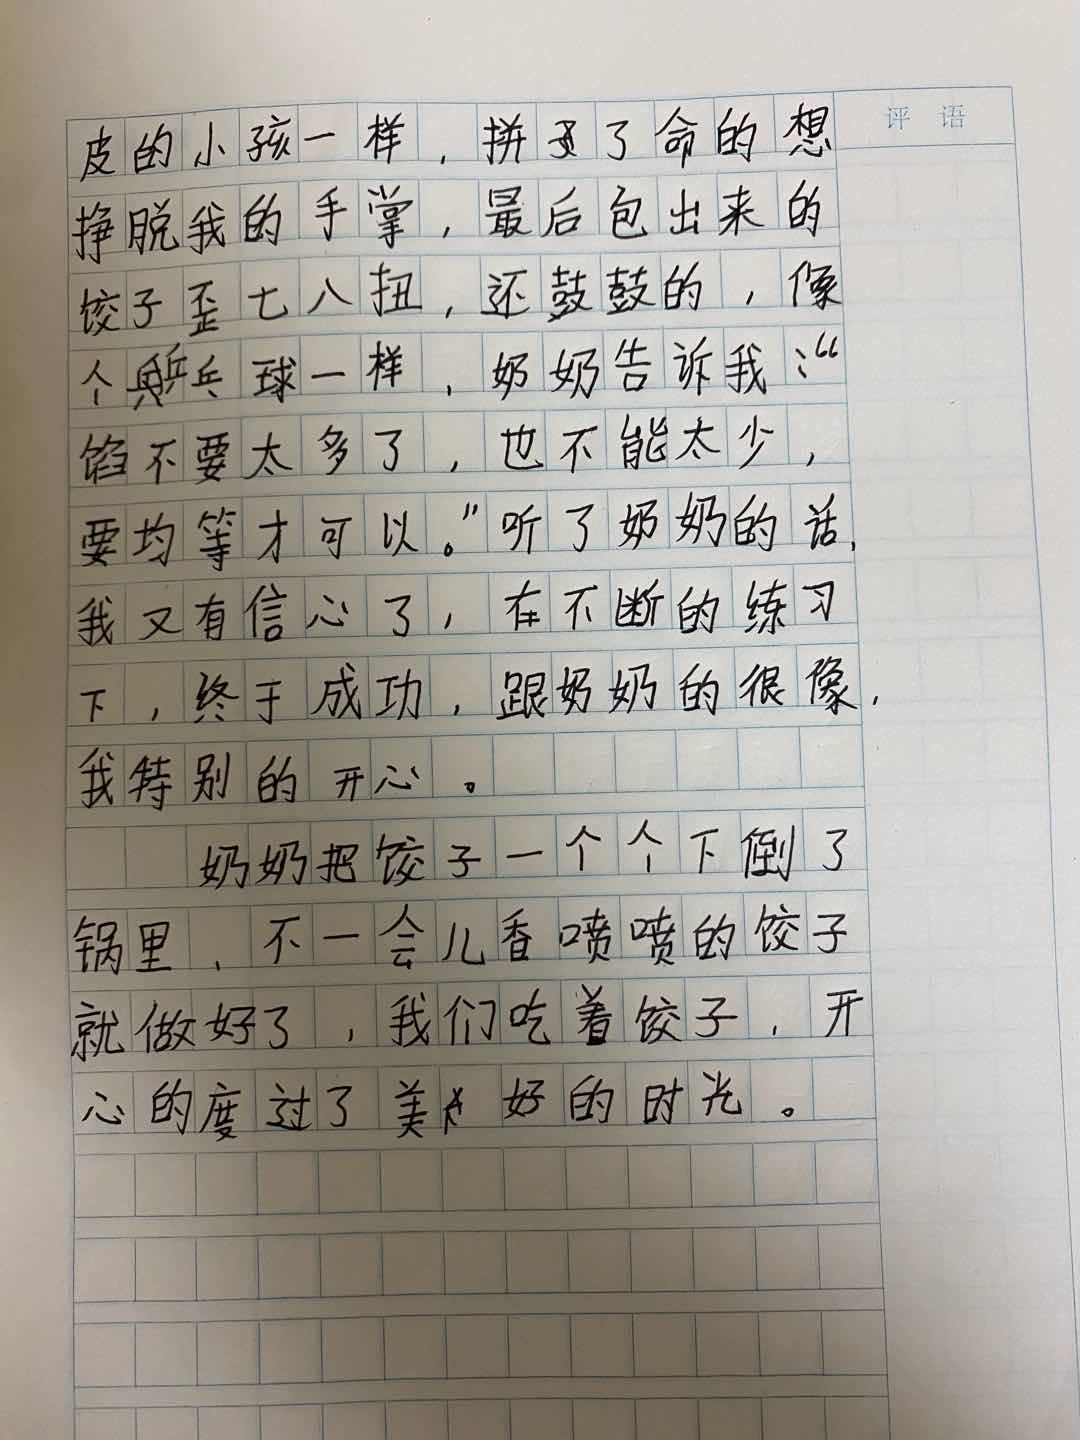 评语
皮的小孩一样，拼了命的想
挣脱我的手掌，最后包出来的
饺子歪七八扭，还鼓鼓的，像
个乒乓球一样，奶奶告诉我：“
馅不要太多了，也不能太少，
要均等才可以。”听了奶奶的话，
我又有信心了，在不断的练习
下，终于成功，跟奶奶的很像，
我特别的开心。
奶奶把饺子一个个下倒了
锅里，不一会儿香喷喷的饺子
就做好了，我们吃着饺子，开
心的度过了美好的时光。